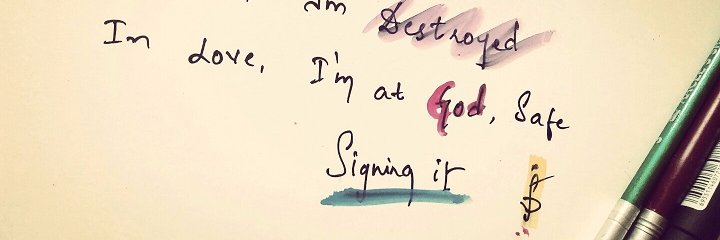 Im Destroyed
In Love, I'm at God, Safe
Signing it